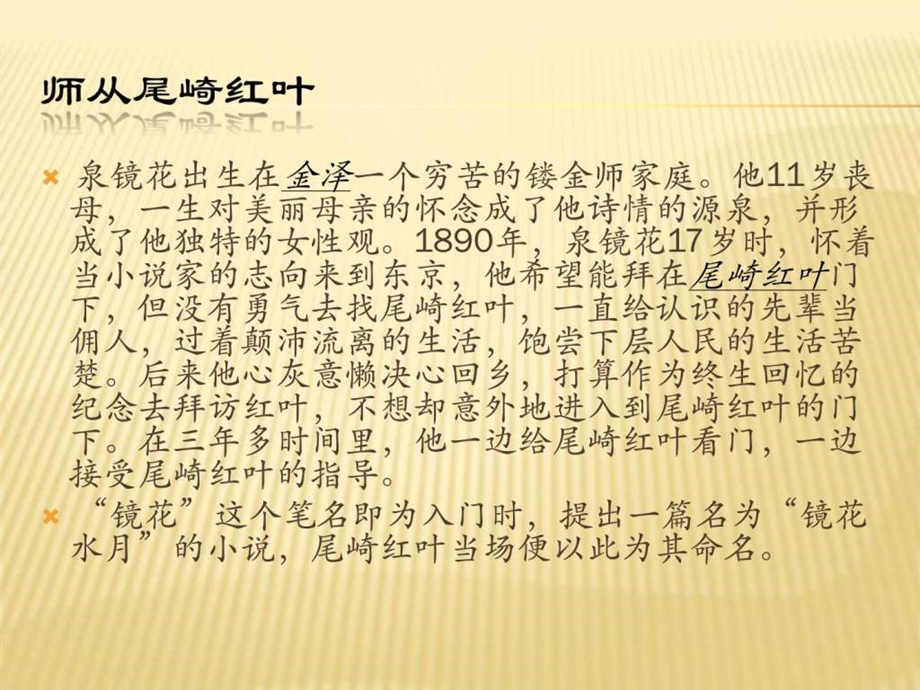 师从尾崎红叶
泉镜花出生在金泽一个穷苦的镂金师家庭。他11岁丧
母，一生对美丽母亲的怀念成了他诗情的源泉，并形
成了他独特的女性观。1890年，泉镜花17岁时，怀着
当小说家的志向来到东京，他希望能拜在尾崎红叶门
下，但没有勇气去找尾崎红叶，一直给认识的先辈当
佣人，过着颠沛流离的生活，饱尝下层人民的生活苦
楚。后来他心灰意懒决心回乡，打算作为终生回忆的
纪念去拜访红叶，不想却意外地进入到尾崎红叶的门
下。在三年多时间里，他一边给尾崎红叶看门，一边
接受尾崎红叶的指导。
“镜花”这个笔名即为入门时，提出一篇名为“镜花
水月”的小说，尾崎红叶当场便以此为其命名。